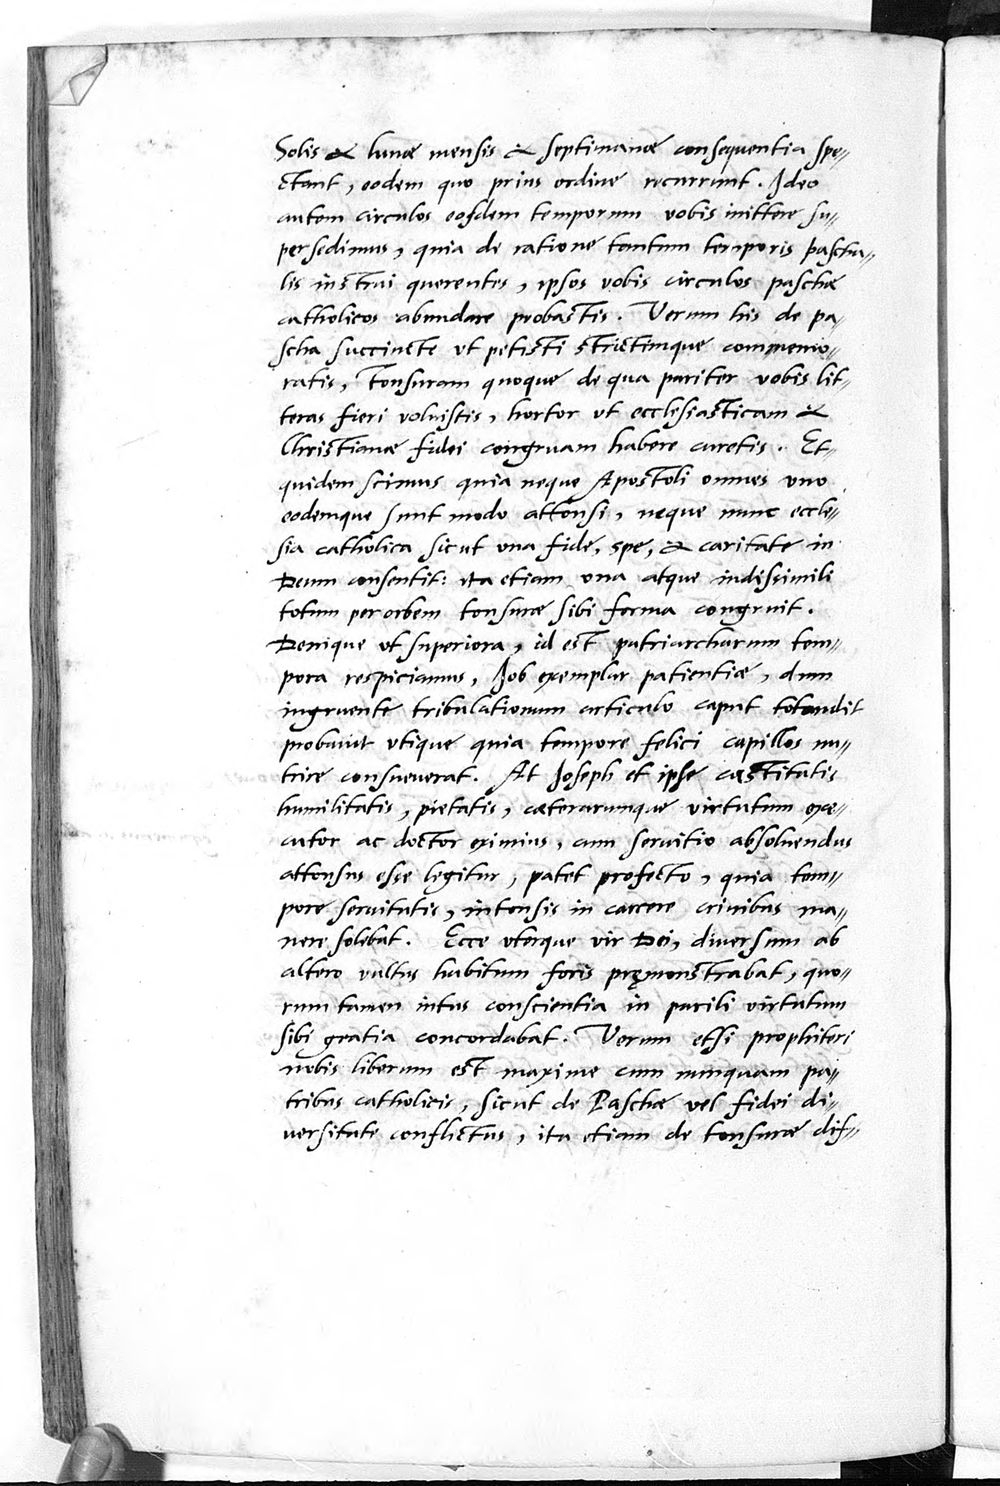 Solis & lunæ mensis & septimanæ consequentia spe-
ctant, eodem quo prius ordine recurrunt. Ideo
autem circulos eosdem temporum vobis mittere su-
persedimus, quia de ratione tantum temporis pascha-
lis instrui querentes, ipsos vobis circulos paschæ
catholicos abundare probastis. Verum his de pa-
scha succincte ut petisti strictimque commemo-
ratis, Tonsuram quoque de qua pariter vobis lit-
teras fieri voluistis, hortor ut ecclesiasticam &
Christianæ fidei congruam habere curetis. Et
quidem scimus quia neque Apostoli omnes uno
eodemque sunt modo attonsi, neque nunc eccle-
sia catholica sicut una fide, spe, & caritate in
Deum consentit: ita etiam una atque indissimili
totum per orbem tonsuræ sibi forma congruit.
Denique ut superiora, id est patriarcharum tem-
pora respiciamus, Iob exemplar patientiæ, dum
ingruente tribulationum articulo caput totondit
probavit utique quia tempore felici capillos nu-
trire consueverat. At Ioseph et ipse castitatis
humilitatis, pietatis, cæterarumque virtutum exe-
cutor ac doctor eximius, cum servitio absolvendus
attonsus esse legitur, patet profecto, quia tem-
pore servitutis, intonsis in carcere crinibus ma-
nere solebat. Ecce uterque vir Dei, diversum ab
altero vultus habitum foris pręmonstrabat, quo-
rum tamen intus conscientia in parili virtutum
sibi gratia concordabat. Verum etsi prophiteri
nobis liberum est maxime cum nunquam pa-
tribus catholicis, sicut de Paschæ vel fidei di-
versitate conflictus, ita etiam de tonsuræ dif-